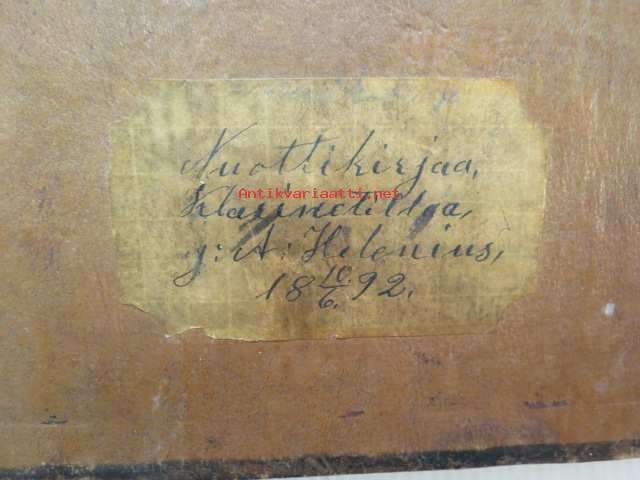 Nuottikirjaa,
Antikvariaatti.net
Klarinetille,
J: A: Helenius,
18 10/6. 92.